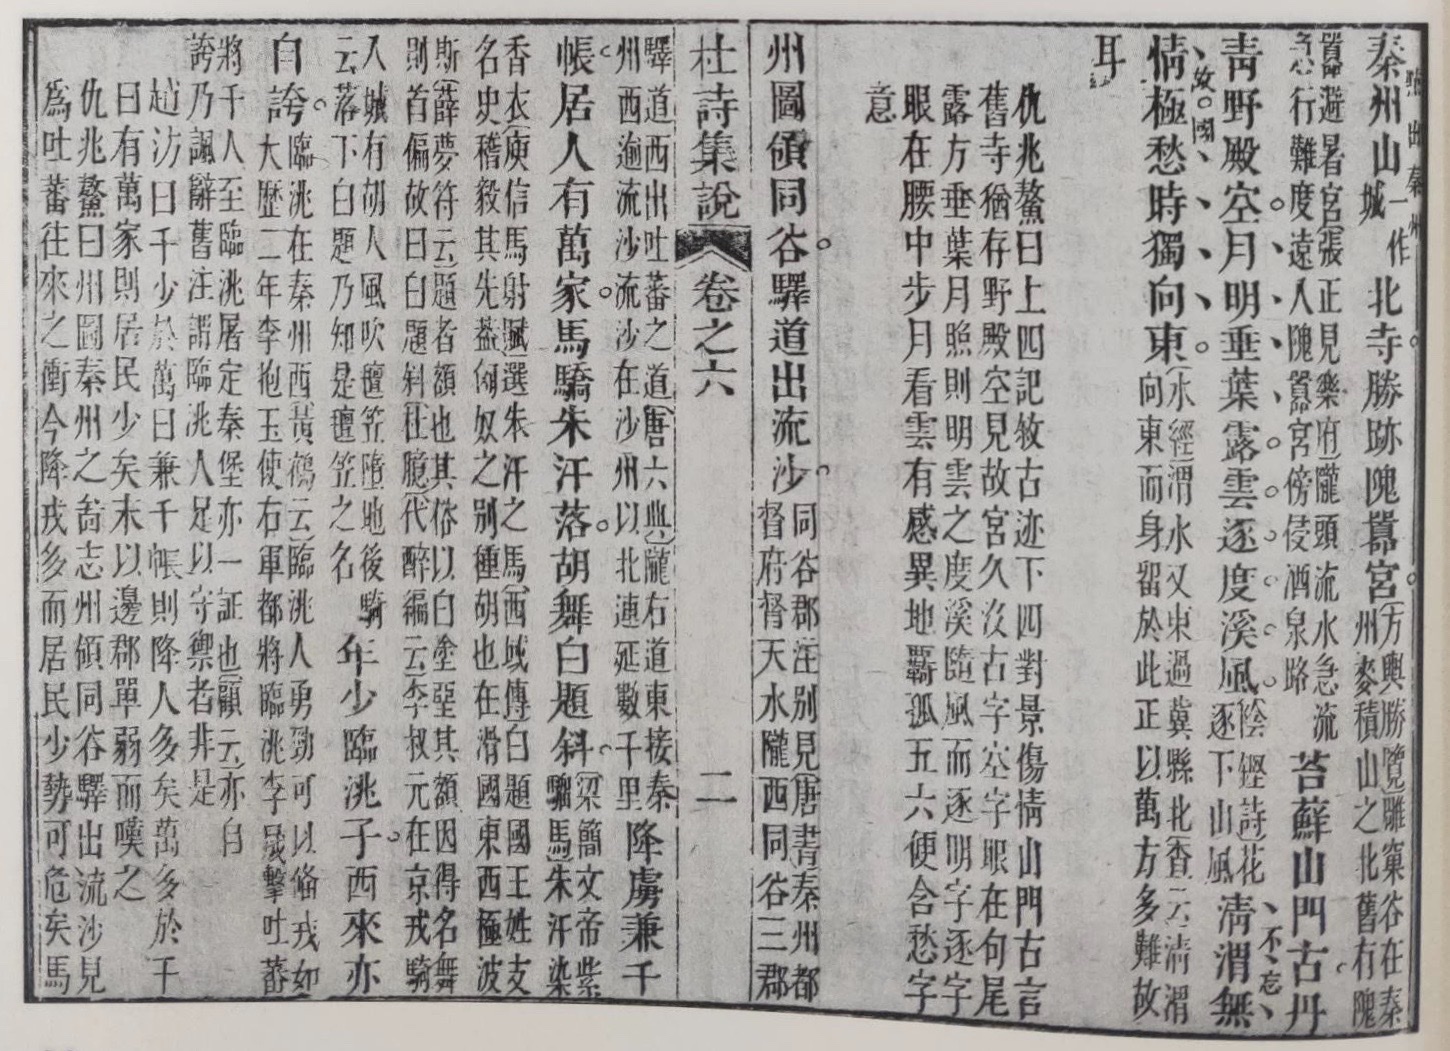 點出秦州
秦州山一作城北寺勝跡隗囂宮(方輿勝覽)雕窠谷在秦州麥積山之北舊有隗
囂避暑宮(張正見樂府)隴頭流水急流急行難度遠入隗囂宮傍侵酒泉路苔蘚山門古丹
青野殿空月明垂葉露雲逐度溪風(陰鏗詩)花逐下山風清渭無
不忘
故國
情極愁時獨向東(水經)渭水又東過冀縣北(查云)清渭向東而身留於此正以萬方多難故
耳
仇兆鰲曰上四記敘古迹下四對景傷情山門古言
舊寺猶存野殿空見故宮久沒古字空字眼在句尾
露方垂葉月照則明雲之度溪隨風而逐明字逐字
眼在腰中步月看雲有感異地羈孤五六便含愁字
意
州圖領同谷驛道出流沙同谷郡注別見(唐書)秦州都督府督天水隴西同谷三郡
杜詩集說 卷之六 二
驛道西出吐蕃之道(唐六典)隴右道東接秦州西逾流沙流沙在沙州以北連延數千里降虜兼千
帳居人有萬家馬驕朱汗落胡舞白題斜(梁簡文帝紫騮馬)朱汗染
香衣(庾信馬射賦)選朱汗之馬(西域傳)白題國王姓支名史稽毅其先葢匈奴之別種胡也在滑國東西極波
斯(薛夢符云)題者額也其俗以白塗堊其額因得名舞則首偏故曰白題斜(杜臆)代醉編云(李叔元在京戎騎
入城有胡人風吹氊笠墮地後騎云落下白題乃知是氊笠之名年少臨洮子西來亦
自誇臨洮在秦州西(黃鶴云)臨洮人勇勁可以俻戎如大歷二年李抱玉使右軍都將臨洮李晟擊吐蕃
將千人至臨洮屠定秦堡亦一証也(顧云)亦自誇乃諷辭舊注謂臨洮人足以守禦者非是
趙汸曰千少於萬曰兼千帳則降人多矣萬多於千
曰有萬家則居民少矣末以邊郡單弱而嘆之
仇兆鰲曰州圖秦州之啚志州領同谷驛出流沙見
爲吐蕃往來之衝今降戎多而居民少勢可危矣馬